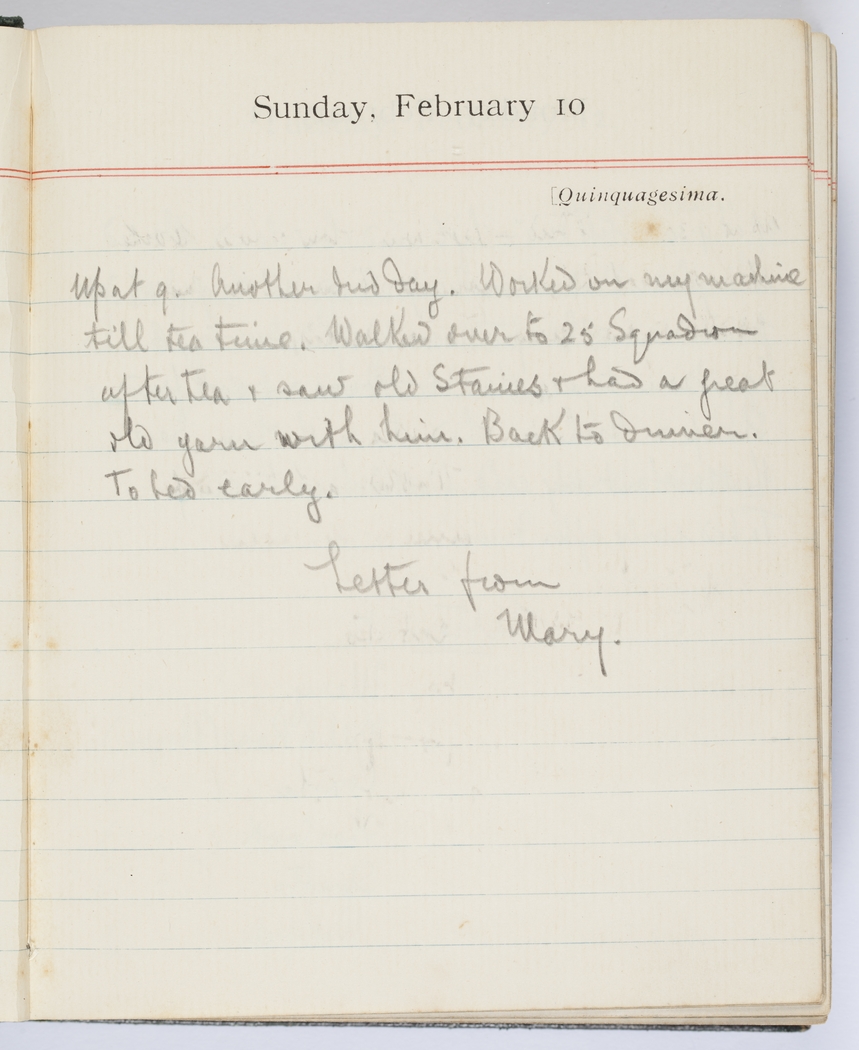 Sunday, February 10
[Quinquagesima.
Up at 9. Another dud day. Worked on my machine
till tea time. Walked over to 25 Squadron
after tea + saw old Staines + had a great
old yarn with him. Back to dinner.
To bed early.
Letter from
Mary.